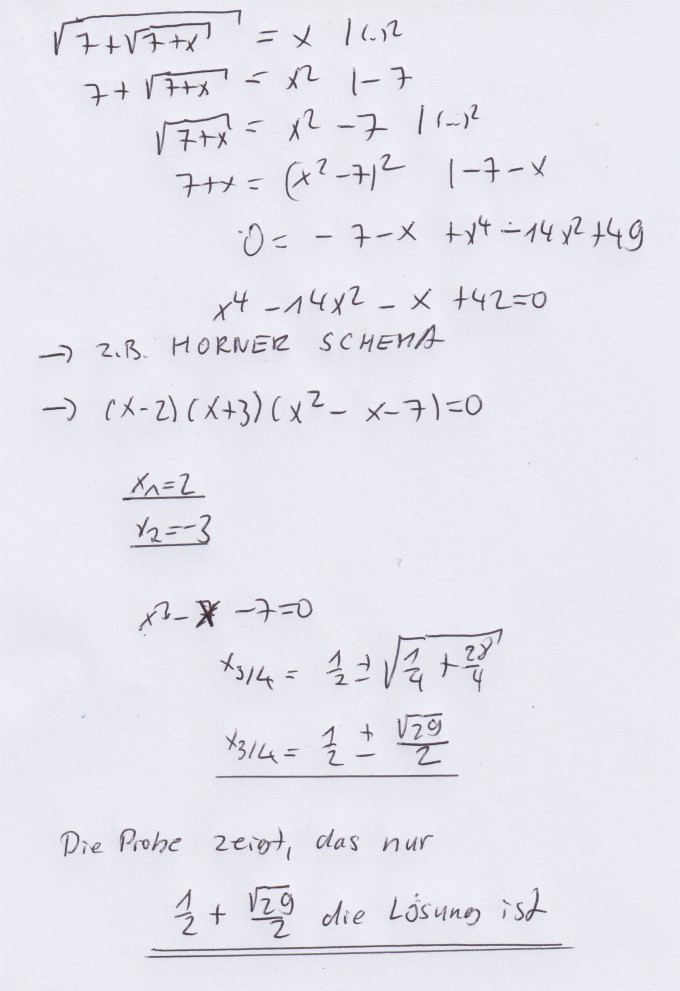 √(7+√(7+x)) = x |(..)²
7+√(7+x) = x² |-7
√(7+x) = x² -7 |(...)²
7+x = (x²-7)² |-7-x
0 = -7-x +x⁴-14x²+49
x⁴ -14x² - x +42=0
→ z.B. HORNER SCHEMA
→ (x-2)(x+3)(x²- x-7)=0
x₁=2
x₂=-3
x²- x -7=0
x₃/₄ = 1/2 ± √(1/4 + 28/4)
x₃/₄ = 1/2 ± √29/2
Die Probe zeigt, das nur
1/2 + √29/2 die Lösung ist